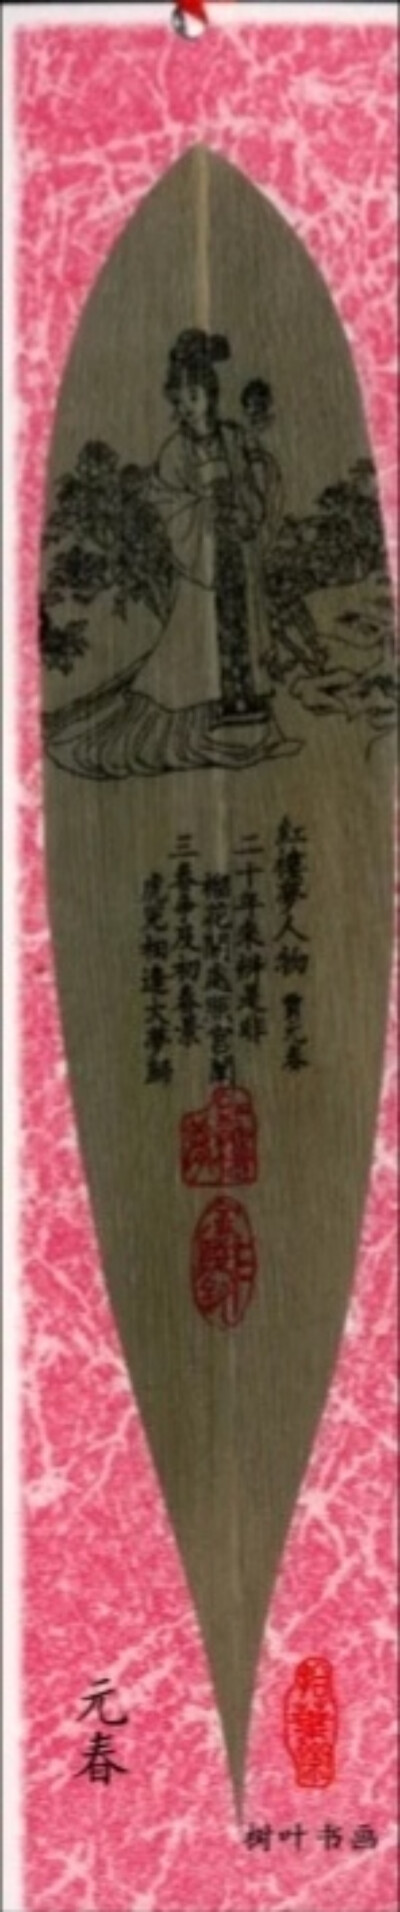 紅樓夢人物 賈元春
二十年來辨是非
榴花開處照宮闈
三春爭及初春景
虎兕相逢大夢歸
元春
树叶书画